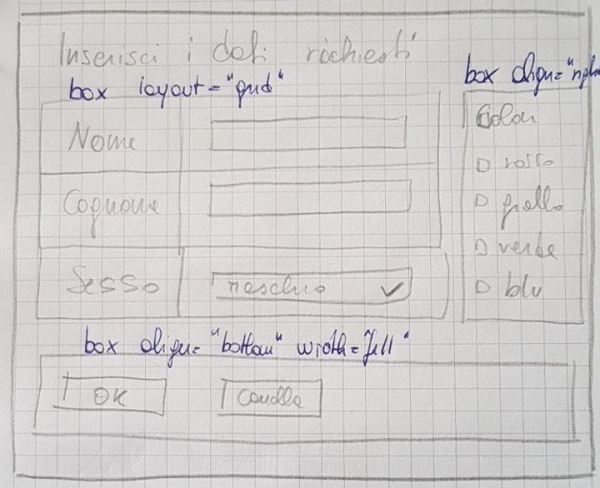 Inserisci i dati richiesti
box layout="grid"
box align="right
Nome
Cognome
Sesso
maschio
Colori
rosso
giallo
verde
blu
box align="bottom" width=fill"
OK
Cancella